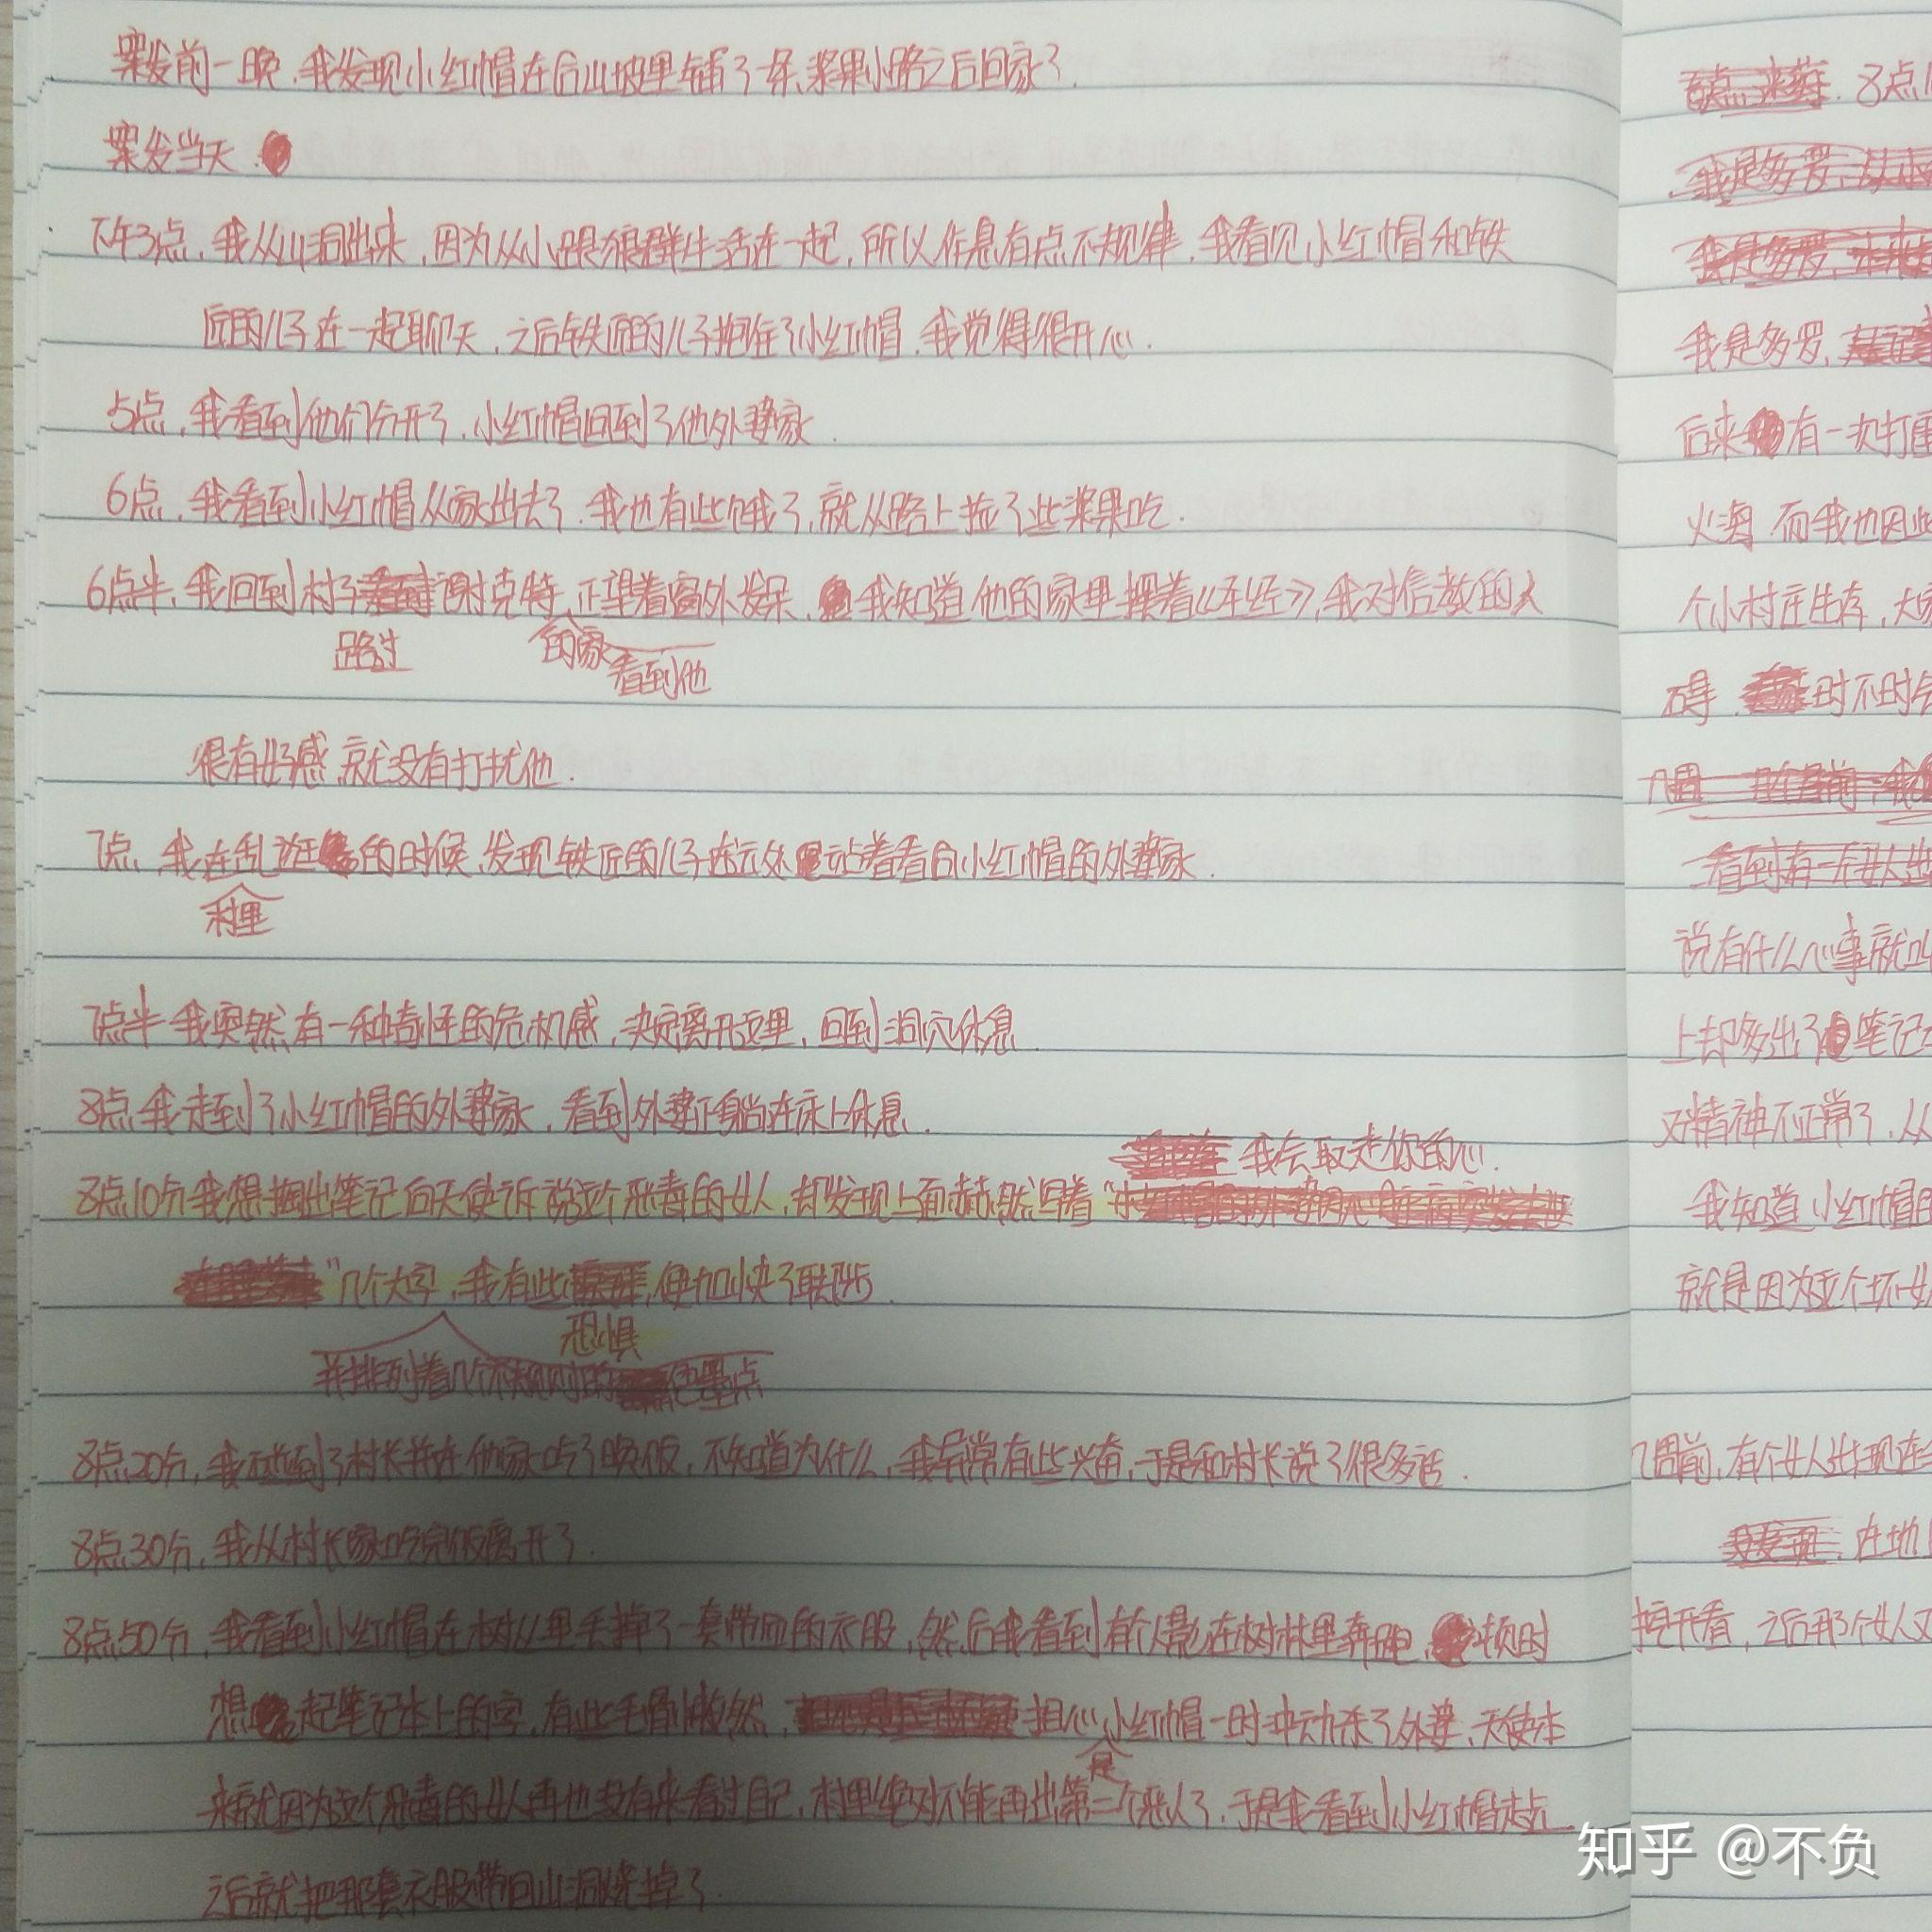 案发前一晚，我发现小红帽在后山坡里铺了一条浆果小路之后回家了.
案发当天
下午3点，我从山洞出来，因为从小跟狼群生活在一起，所以作息有点不规律，我看见小红帽和铁
匠的儿子在一起聊天，之后铁匠的儿子抱住了小红帽，我觉得很开心.
5点，我看到他们分开了，小红帽回到了他外婆家.
6点，我看到小红帽从家出去了，我也有些饿了，就从路上捡了些浆果吃.
6点半，我回到村子 谢克特，正望着窗外发呆，我知道他的家里摆着《圣经》，我对信教的人
路过
的家
看到他
很有好感，就没有打扰他.
7点，我在乱逛的时候，发现铁匠的儿子在远处站着看向小红帽的外婆家.
村里
7点半 我突然有一种奇怪的危机感，决定离开这里，回到洞穴休息.
8点，我走到了小红帽的外婆家，看到外婆正躺在床上休息.
我会取走你的心.
8点10分我想掏出笔记向天使诉说这个恶毒的女人，却发现上面赫然写着“
”几个大字，我有些，便加快了联步.
恐惧
并排列着几个不规则的 墨点
8点20分，我碰到了村长并在他家吃了晚饭，不知道为什么，我异常有些兴奋，于是和村长说了很多话.
8点30分，我从村长家吃完饭离开了.
8点50分，我看到小红帽在树丛里丢掉了一套带血的衣服，然后我看到有人影在树林里奔跑，顿时
想起笔记本上的字，有些毛骨悚然，担心小红帽一时冲动杀了外婆，天使本
是
来就因为这个恶毒的女人再也没有来看过自己，村里绝对不能再出第二个恶人了，于是我看到小红帽走远
之后就把那套衣服带回山洞烧掉了.
8点
我是多罗，
我是多罗，
我是多罗，
后来有一次打雷
火海，而我也因此
个小村庄生存，大家
得，时不时
看到有一个女人
说有什么心事就叫
上却多出了笔记
对精神不正常了，从
我知道小红帽的
就是因为这个坏女
周前，有个女人出现在
在地
挖开看，之后那个女人又
知乎 @不负